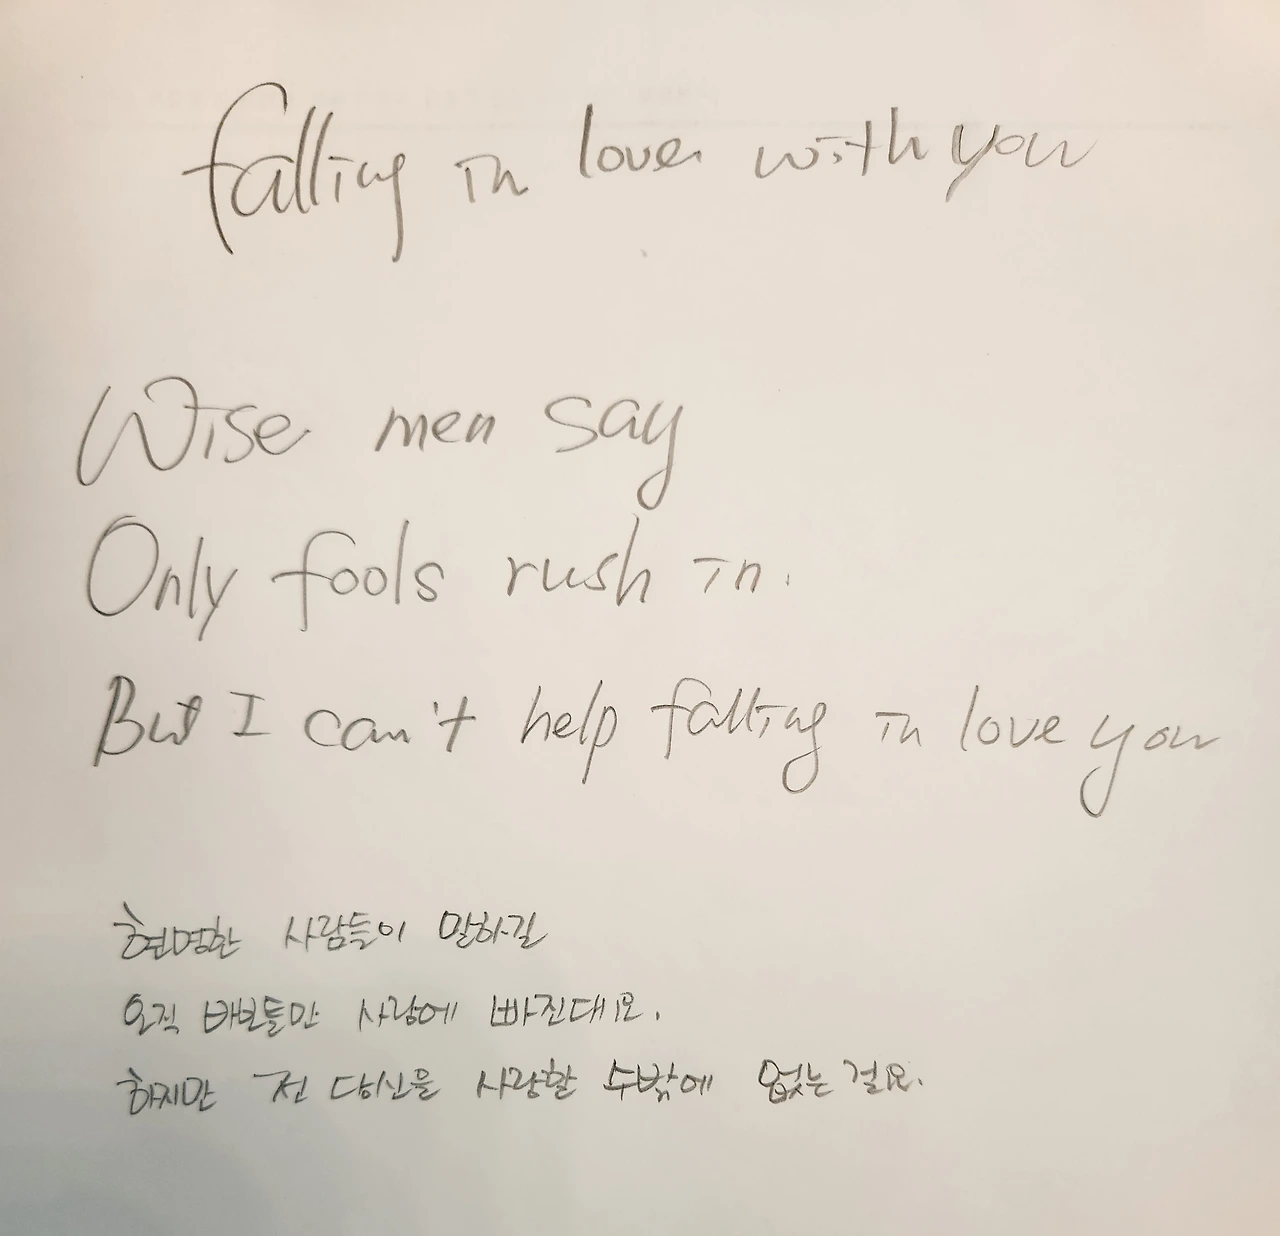 falling in love with you
Wise men say
Only fools rush in.
But I can't help falling in love you
현명한 사람들이 말하길
오직 바보들만 사랑에 빠진대요.
하지만 전 당신을 사랑할 수밖에 없는걸요.